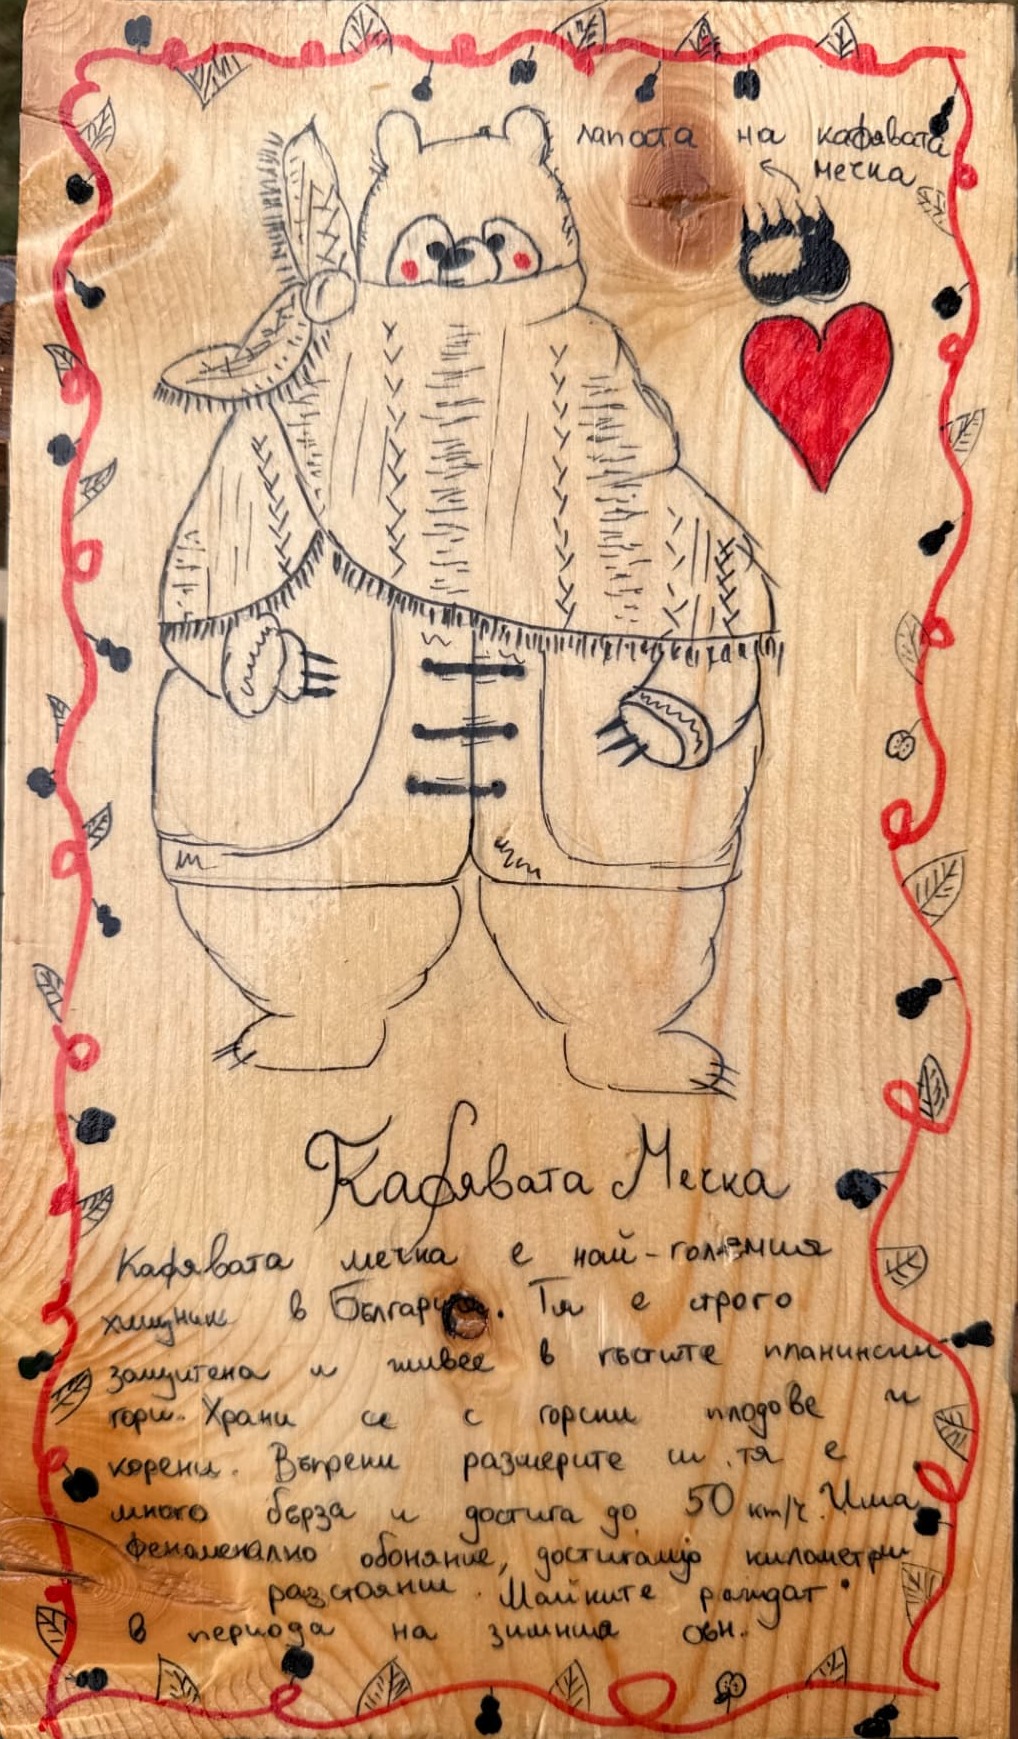 лапата на кафявата
мечка
Кафявата Мечка
Кафявата мечка е най-големия
хищник в България. Тя е строго
защитена и живее в гъстите планински
гори. Храни се с горски плодове и
корени. Въпреки размерите и, тя е
много бърза и достига до 50 km/ч. Има
феноменално обоняние, достигащо километри
разстояния. Майките раждат
в периода на зимния сън.